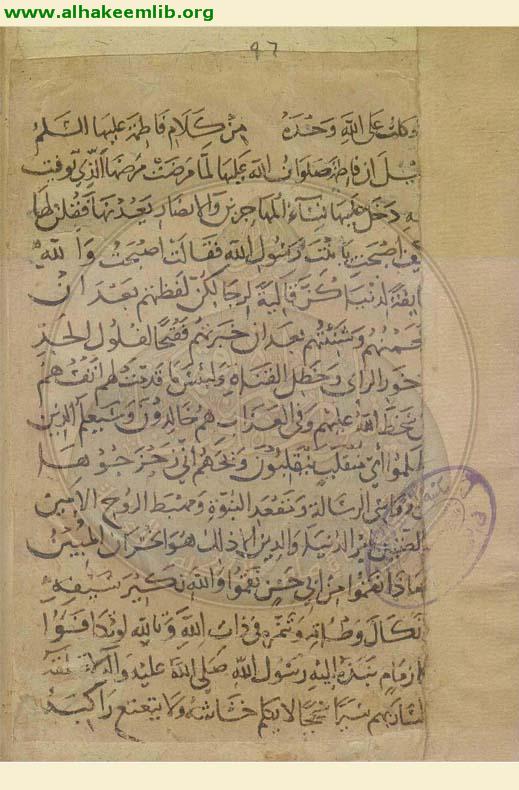 www.alhakeemlib.org
٩٦
توكلت على الله وحده من كلام فاطمة عليها السلم
قيل ان فاطمة صلوات الله عليها لما مرضت مرضها الذي توفيت
به دخل عليها نساء المهاجرين والانصار يعدنها فقلن لها
كيف اصبحت يا بنت رسول الله فقالت اصبحت والله
عايفة لدنياكن قالية لرجالكن لفظتهم بعد ان
عجمتهم وشنئتهم بعد ان خبرتهم فقبحا لفلول الحد
وخور الراي وخطل القناة ولبئس ما قدمت لهم انفسهم
ان سخط الله عليهم وفي العذاب هم خالدون وسيعلم الذين
ظلموا اي منقلب ينقلبون ويحهم انى زحزحوها
عن رواسي الرسالة وقواعد النبوة ومهبط الروح الامين
بامر الدنيا والدين الا ذلك هو الخسران المبين
ما ذا نقموا من ابي حسن نقموا والله نكير سيفه
ونكال وطاته وتنمره في ذات الله وتالله لو تكافوا
عن زمام نبذه اليه رسول الله صلى الله عليه واله
لسار بهم سيرا سجحا لا يكلم خشاشه ولا يتعتع راكبه